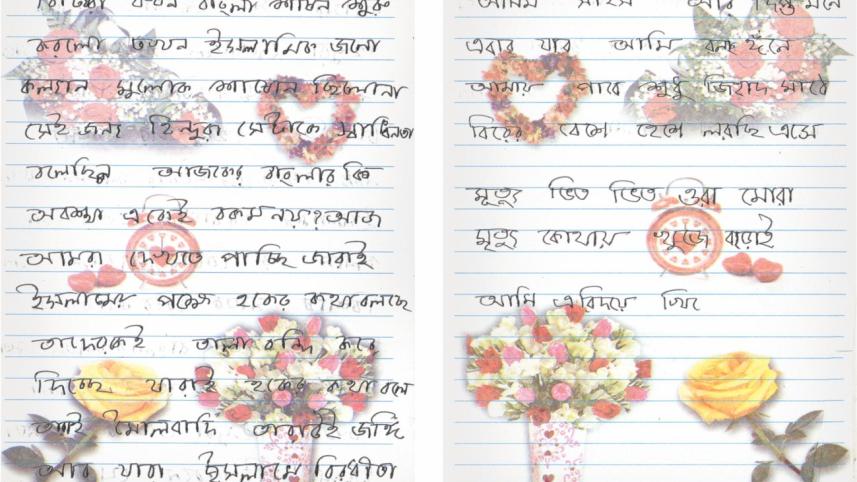 করলো তখন ইসলামিক জলো
কল্যান মুলোক শাসোন ছিলোনা
সেই জন্য হিন্দুরা সেটাকে স্বাধিনতা
বলেছিল আজকের বাংলার কি
অবস্থা একেই রকম নয়? আজ
আমরা দেখতে পাচ্ছি জারাই
ইসলামের পক্ষে হকের কথা বলছে
তাদেরকেই তালা বন্দি করে
দিচ্ছে যারাই হকের কথা বলে
তারাই মৌলবাদি তারাই জঙ্গি
আর যারা ইসলামে বিরধীতা
এবার যার আমি
আমায় পাবে শুধু জিহাদ মাঠে
বিরের বেশে হেশে লরছি এসে
মৃত্যু ভিত ভিত ওরা মোরা
মৃত্যু কোথায় খুজে বড়াই
আমি এবিদয়ে